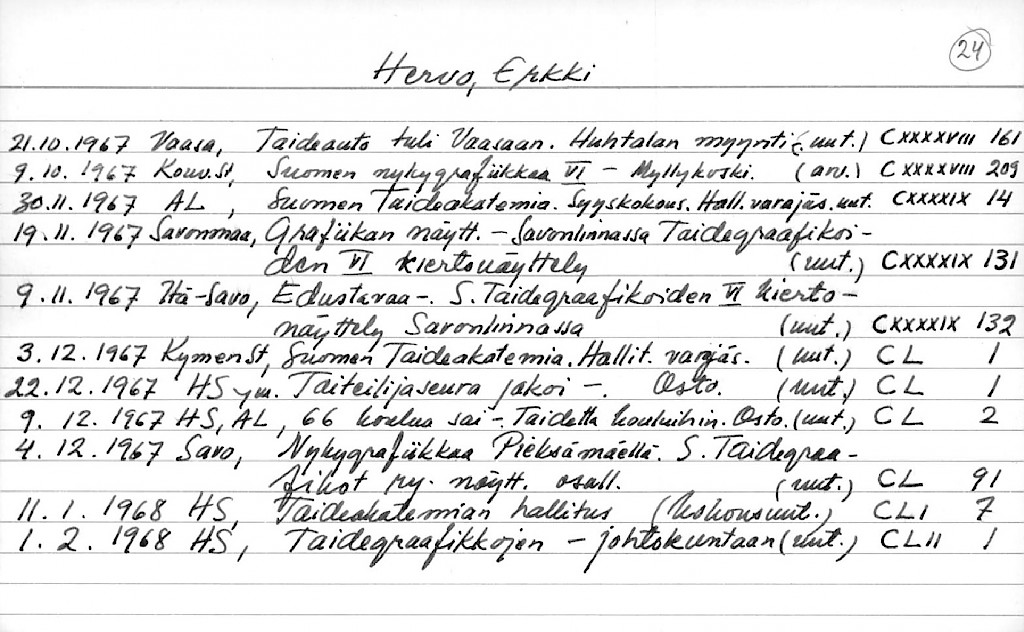 24
Hervo, Erkki
21.10.1967 Vaasa, Taideauto tuli Vaasaan. Huhtalan myynti (uut.) CXXXXVIII 161
9.10.1967 Kouv.St, Suomen nykygrafiikkaa VI - Myllykoski. (arv.) CXXXXVIII 209
30.11.1967 AL, Suomen Taideakatemia. Syyskokous. Hall. varajäs. uut. CXXXXIX 14
19.11.1967 Savonmaa, Grafiikan näytt. - Savonlinnassa Taidegraafikoi-
den VI kiertonäyttely (uut.) CXXXXIX 131
9.11.1967 Itä-Savo, Edustavaa -. S. Taidegraafikoiden VI kierto-
näyttely Savonlinnassa (uut.) CXXXXIX 132
3.12.1967 KymenSt, Suomen Taideakatemia. Hallit. varajäs. (uut.) CL 1
22.12.1967 HS ym. Taiteilijaseura jakoi -. Osto. (uut.) CL 1
9.12.1967 HS, AL, 66 koulua sai -. Taidetta kouluihin. Osto. (uut.) CL 2
4.12.1967 Savo, Nykygrafiikkaa Pieksämäellä. S. Taidegraa-
fikot ry. näytt. osall. (uut.) CL 91
11.1.1968 HS, Taideakatemian hallitus (kokousuut.) CLI 7
1.2.1968 HS, Taidegraafikkojen - johtokuntaan (uut.) CLII 1